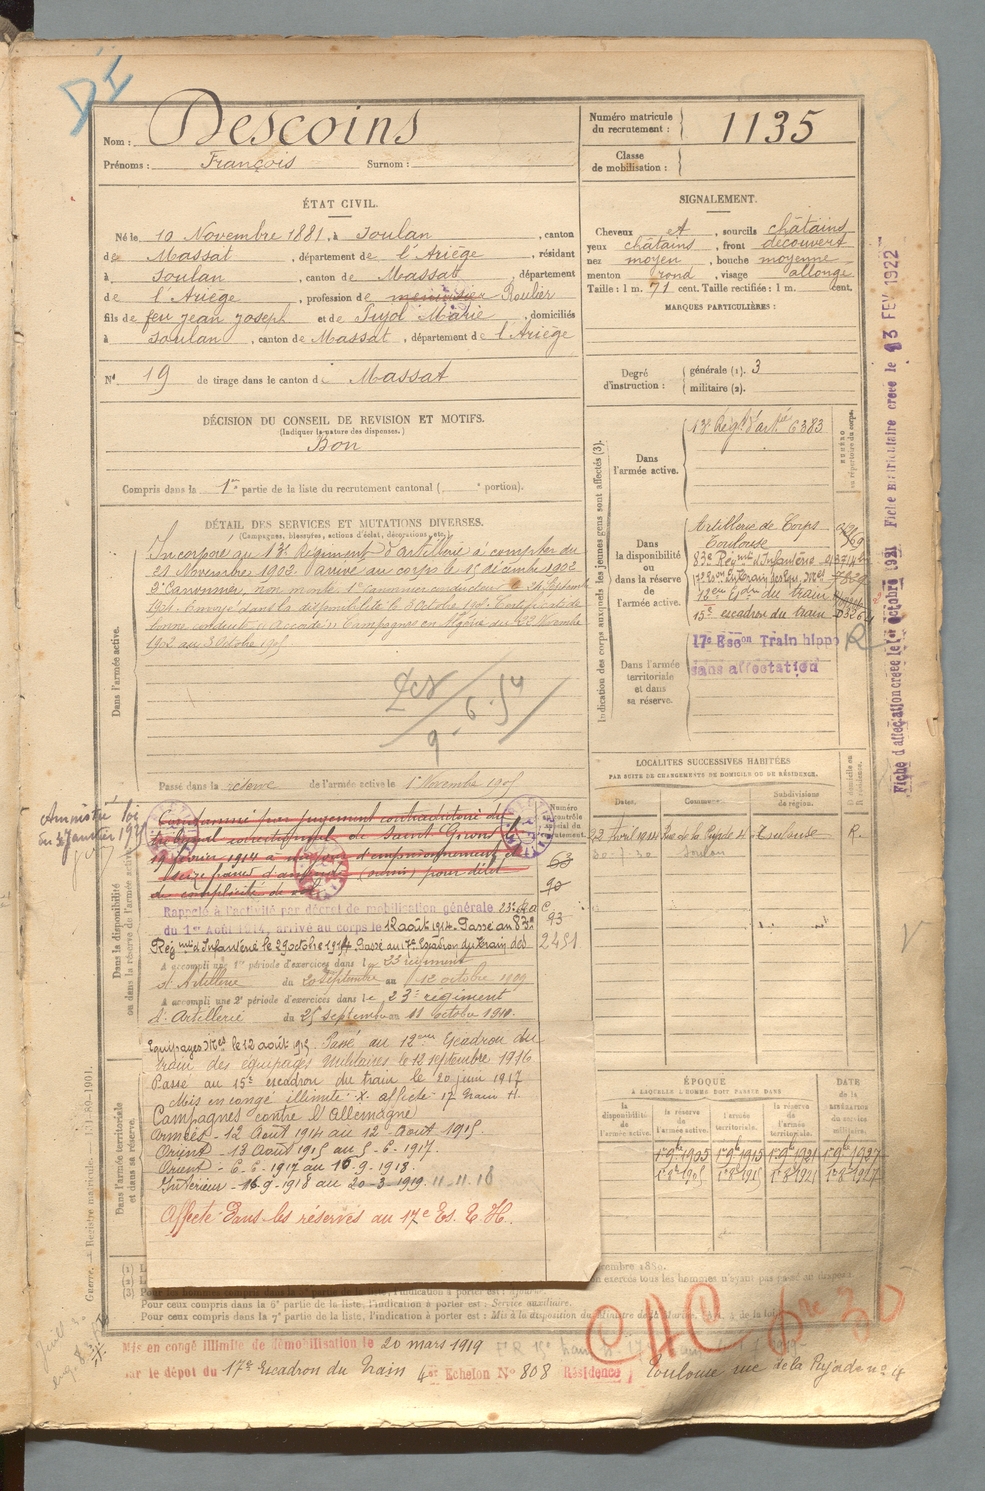 DI
Nom : Descoins
Prénoms : François Surnom :
Numéro matricule du recrutement : 1135
Classe de mobilisation :
ÉTAT CIVIL.
Né le 10 Novembre 1881, à Soulan, canton
de Massat, département de l'Ariège, résidant
à Soulan, canton de Massat, département
de l'Ariège, profession de menuisier Roulier
fils de feu jean joseph et de Pujol Marie, domiciliés
à Soulan, canton de Massat, département de l'Ariège
N° 19 de tirage dans le canton de Massat
SIGNALEMENT.
Cheveux et, sourcils châtains
yeux châtains, front découvert
nez moyen, bouche moyenne
menton rond, visage allongé
Taille : 1 m. 71 cent. Taille rectifiée : 1 m. cent.
MARQUES PARTICULIÈRES :
Degré d'instruction : générale (1). 3
militaire (2).
DÉCISION DU CONSEIL DE REVISION ET MOTIFS.
(Indiquer la nature des dispenses.)
Bon
Compris dans la 1re partie de la liste du recrutement cantonal ( e portion).
DÉTAIL DES SERVICES ET MUTATIONS DIVERSES.
(Campagnes, blessures, actions d'éclat, décorations, etc.)
Dans l'armée active.
Incorporé au 13e Régiment d'artillerie à compter du
21 Novembre 1902. arrivé au corps le 15 décembre 1902
2e Canonnier, non monté. 1er Canonnier conducteur le 24 Septembre
1904. Envoyé dans la disponibilité le 3 Octobre 1905. Certificat de
bonne conduite "Accordé". Campagnes en Algérie du 22 Novembre
1902 au 3 Octobre 1905
Passé dans la réserve de l'armée active le 1er Novembre 1905
Indication des corps auxquels les jeunes gens sont affectés (3).
NUMÉRO au répertoire du corps.
Dans l'armée active.
13e Régt d'artie 6383
Dans la disponibilité ou dans la réserve de l'armée active.
Artillerie de Corps
Toulouse
83e Régimt d'Infanterie
12e Eson du train
15e escadron du train
Dans l'armée territoriale et dans sa réserve.
17e Eson Train hippo R
sans affectation
Fiche d'affectation créée le 1er octobre 1921 Fiche matriculaire créée le 13 FEV 1922
LOCALITÉS SUCCESSIVES HABITÉES
PAR SUITE DE CHANGEMENTS DE DOMICILE OU DE RÉSIDENCE.
Dates. Communes. Subdivisions de région. D domicile ou R résidence.
22 Avril 1914 Rue de la Pujade 4 Toulouse R.
30-7-30 Soulan
Amnistié loi
du 3 Janvier 1925
Dans la disponibilité ou dans la réserve de l'armée active
Condamné par jugement contradictoire du
tribunal correctionnel de Saint Girons
19 février 1914 à d'emprisonnement et
seize francs d'amende (sursis) pour délit
de complicité de vol
Numéro contrôle spécial du recrutement.
63
90
93
2451
Rappelé à l'activité par décret de mobilisation générale 23e d'a
du 1er Août 1914, arrivé au corps le 12 août 1914. Passé au 83e
Régimt d'Infanterie le 29 octobre 1914. Passé au 17e Escadron du train des
A accompli une 1re période d'exercices dans le 23 régiment
d'Artillerie du 20 Septembre au 12 octobre 1909
A accompli une 2e période d'exercices dans le 23e régiment
d'Artillerie du 25 septembre au 11 Octobre 1911.
Equipages Mres le 12 août 1915. Passé au 12eme Escadron du
train des équipages Militaires le 12 septembre 1916
Passé au 15e escadron du train le 20 juin 1917
Mis en congé illimité. X. affecté 17 train H.
Campagnes contre l'Allemagne
Armées - 12 Août 1914 au 12 Août 1915.
Orient - 13 Août 1915 au 5-6-1917.
Orient - 6-6-1917 au 15-9-1918.
Intérieur - 16-9-1918 au 20-3-1919 11-11-18
Affecté dans les réserves au 17e Es. T. H.
Dans l'armée territoriale et dans sa réserve.
ÉPOQUE
À LAQUELLE L'HOMME DOIT PASSER DANS
la disponibilité de l'armée active. la réserve de l'armée active. l'armée territoriale. la réserve de l'armée territoriale.
DATE de la LIBÉRATION du service militaire.
1er 9bre 1905 1er 9bre 1915 1er 9bre 1921 1er 9bre 1927
1er 8bre 1905 1er 8 1915 1er 8 1921 1er 8 1927
Guerre. — Registre matricule.
Pour ceux compris dans la 6e partie de la liste, l'indication à porter est : Service auxiliaire.
Pour ceux compris dans la 7e partie de la liste, l'indication à porter est : Mis à la disposition du Ministre de la Marine.
Mis en congé illimité de démobilisation le 20 mars 1919
par le dépôt du 17e Escadron du train 4er Echelon N° 808 Résidence Toulouse rue de la Pujade n° 4